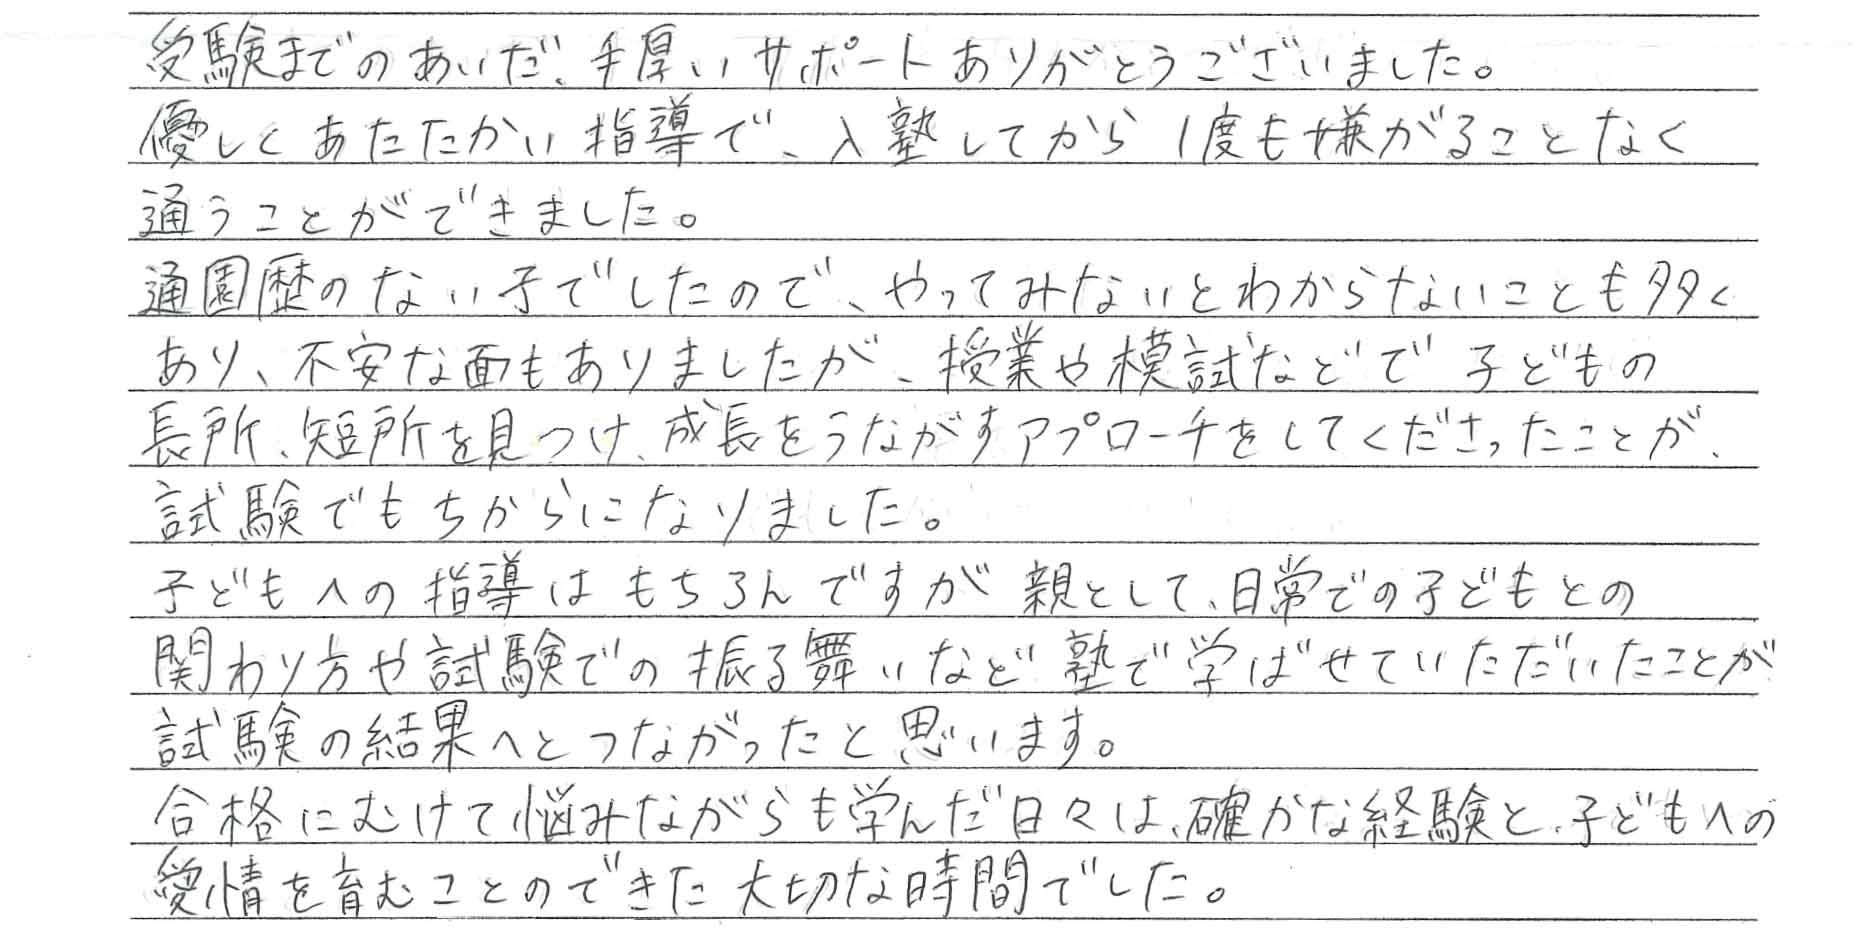 受験までのあいだ、手厚いサポートありがとうございました。
優しくあたたかい指導で、入塾してから1度も嫌がることなく
通うことができました。
通園歴のない子でしたので、やってみないとわからないことも多く
あり、不安な面もありましたが、授業や模試などで子どもの
長所、短所を見つけ、成長をうながすアプローチをしてくださったことが、
試験でもちからになりました。
子どもへの指導はもちろんですが親として、日常での子どもとの
関わり方や試験での振る舞いなど塾で学ばせていただいたことが
試験の結果へとつながったと思います。
合格にむけて悩みながらも学んだ日々は、確かな経験と、子どもへの
愛情を育むことのできた大切な時間でした。